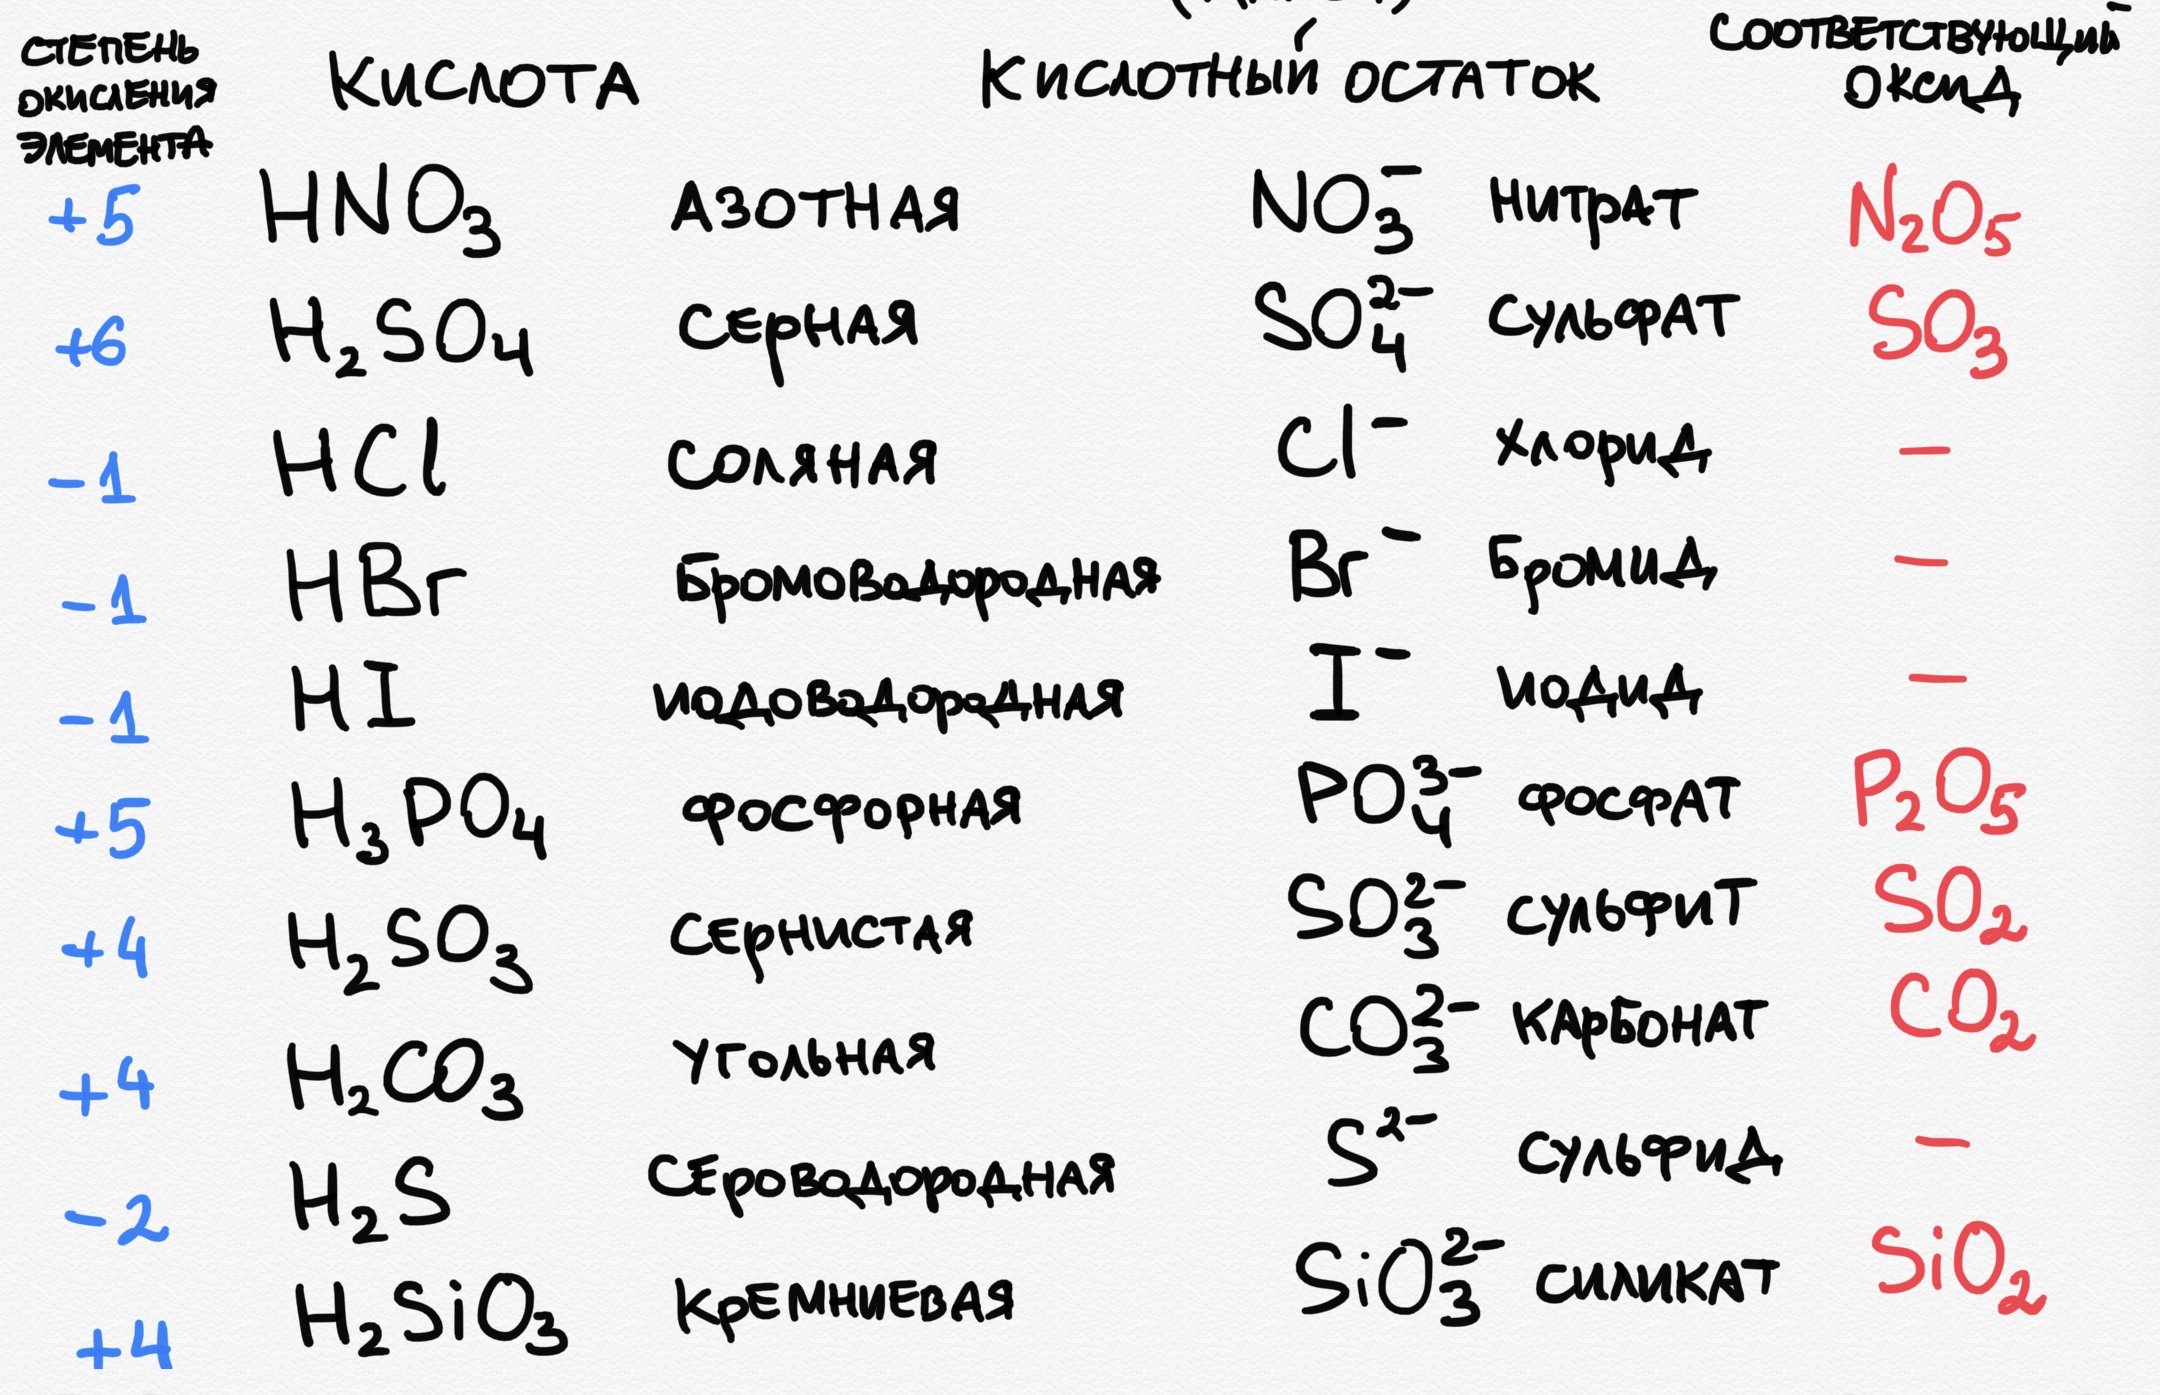 СТЕПЕНЬ ОКИСЛЕНИЯ ЭЛЕМЕНТА КИСЛОТА КИСЛОТНЫЙ ОСТАТОК СООТВЕТСТВУЮЩИЙ ОКСИД
+5 HNO₃ АЗОТНАЯ NO₃⁻ НИТРАТ N₂O₅
+6 H₂SO₄ СЕРНАЯ SO₄²⁻ СУЛЬФАТ SO₃
-1 HCl СОЛЯНАЯ Cl⁻ ХЛОРИД —
-1 HBr БРОМОВОДОРОДНАЯ Br⁻ БРОМИД —
-1 HI ИОДОВОДОРОДНАЯ I⁻ ИОДИД —
+5 H₃PO₄ ФОСФОРНАЯ PO₄³⁻ ФОСФАТ P₂O₅
+4 H₂SO₃ СЕРНИСТАЯ SO₃²⁻ СУЛЬФИТ SO₂
+4 H₂CO₃ УГОЛЬНАЯ CO₃²⁻ КАРБОНАТ CO₂
-2 H₂S СЕРОВОДОРОДНАЯ S²⁻ СУЛЬФИД —
+4 H₂SiO₃ КРЕМНИЕВАЯ SiO₃²⁻ СИЛИКАТ SiO₂